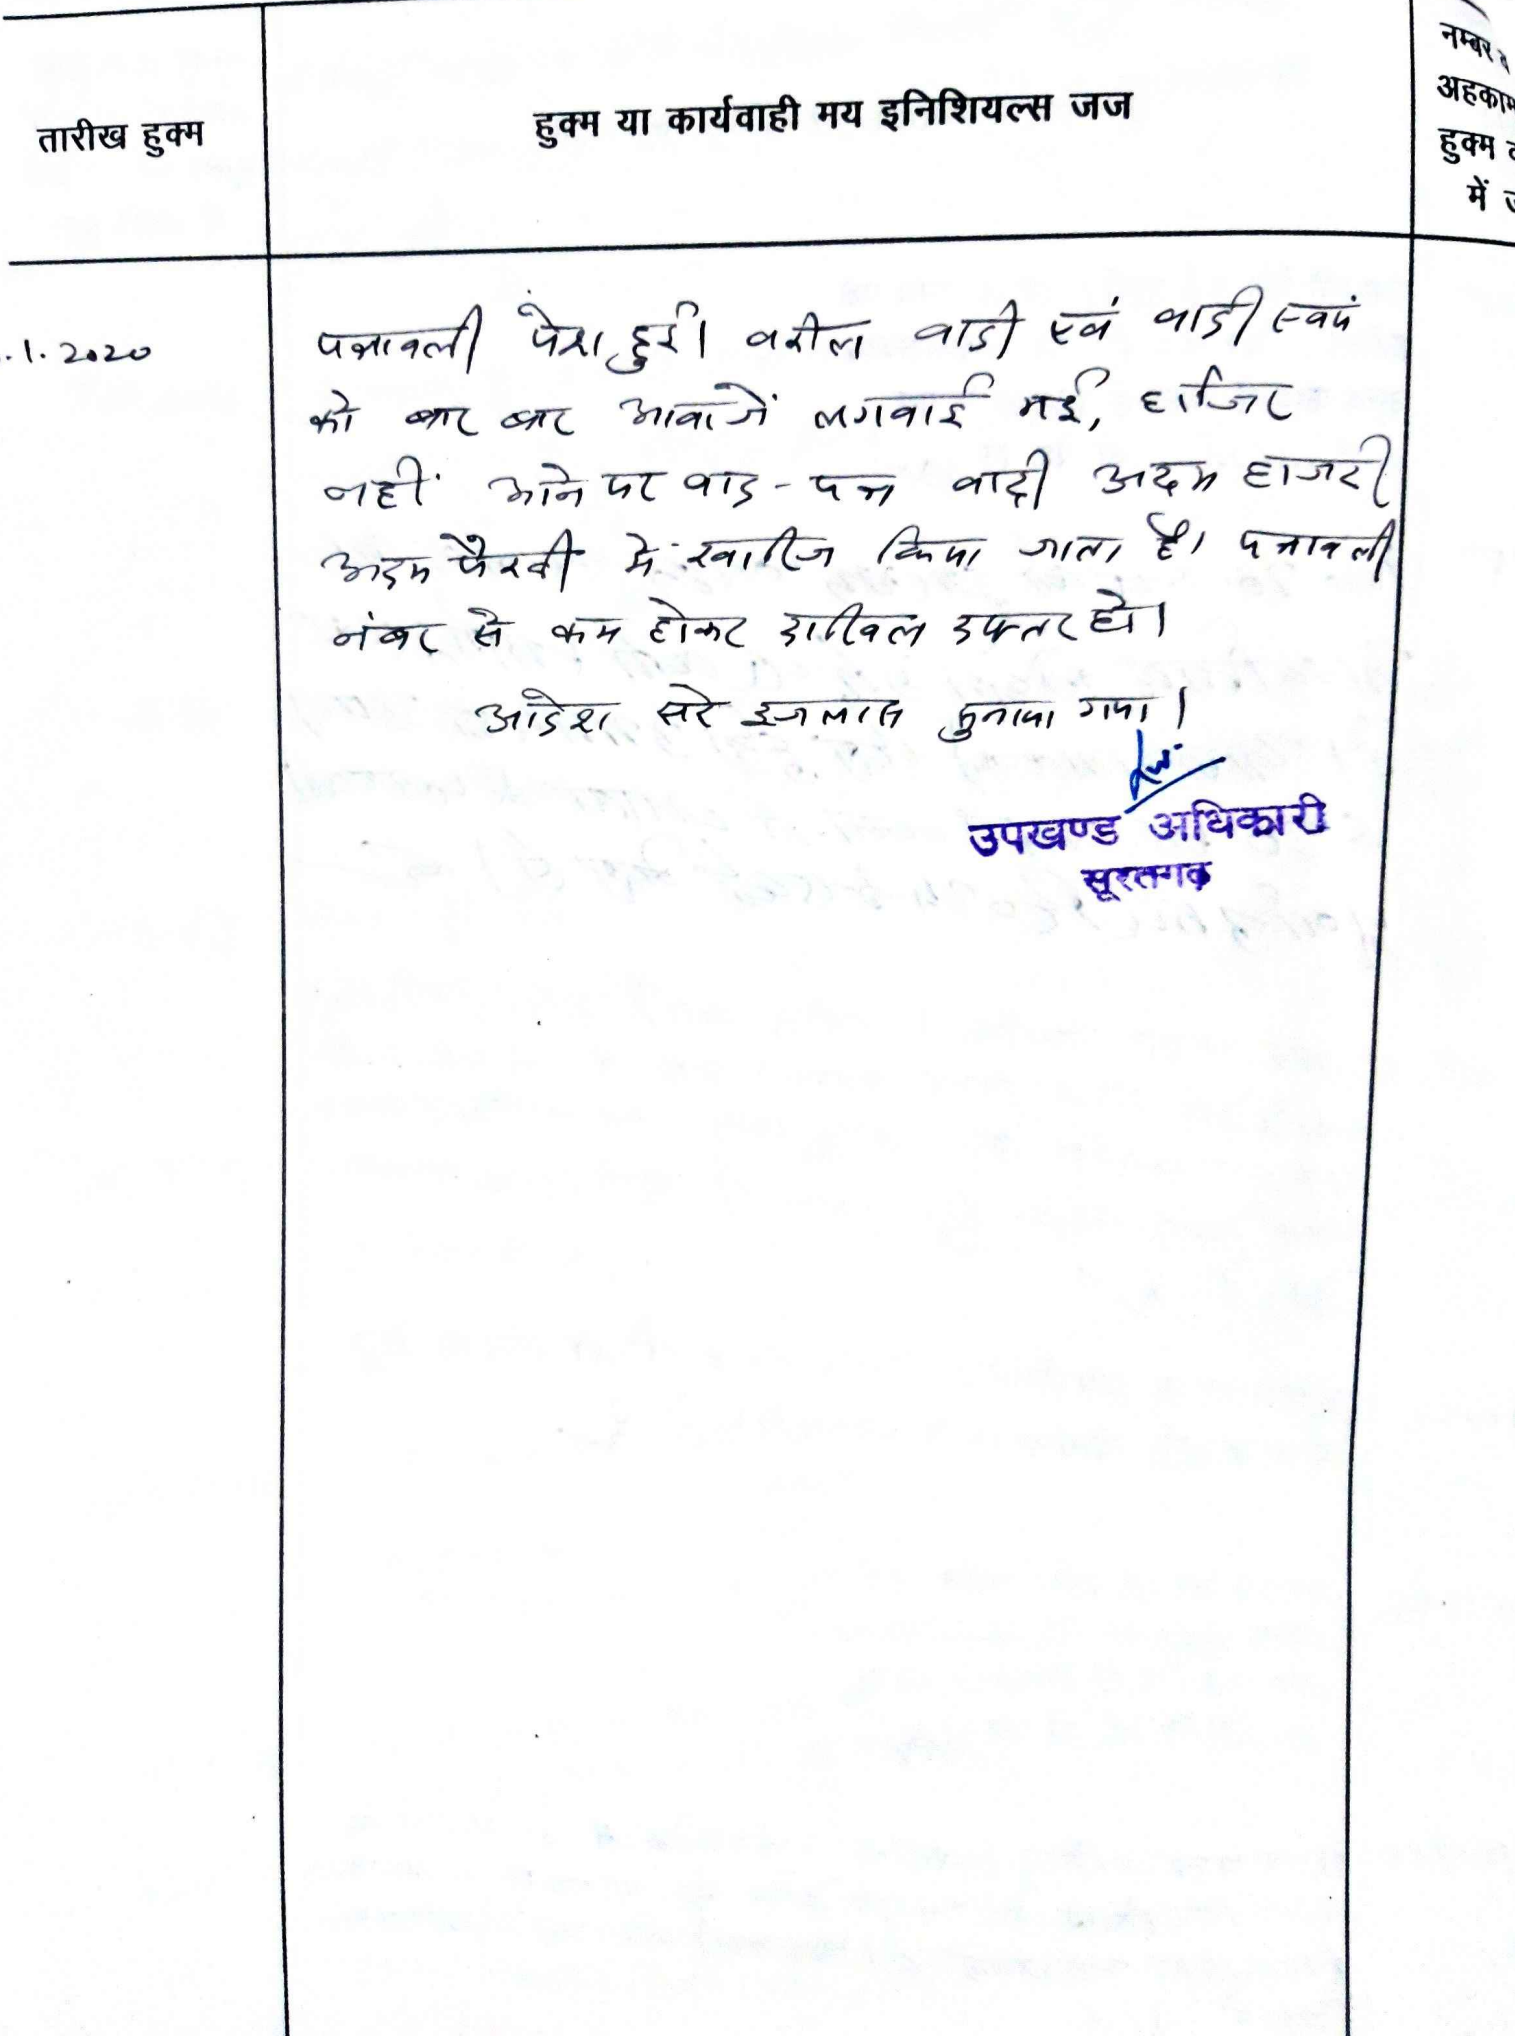 तारीख हुक्म
हुक्म या कार्यवाही मय इनिशियल्स जज
नम्बर व
अहकाम
हुक्म
में
.1.2020
पत्रावली पेश हुई। वकील वादी एवं वादी स्वयं
को बार बार आवाजें लगवाई गई, हाजिर
नहीं आने पर वाद-पत्र वादी अदम हाजरी
अदम पैरवी में खारिज किया जाता है। पत्रावली
नंबर से कम होकर दाखिल दफ्तर हो।
आदेश सरे इजलास सुनाया गया।
उपखण्ड अधिकारी
सूरतगढ़